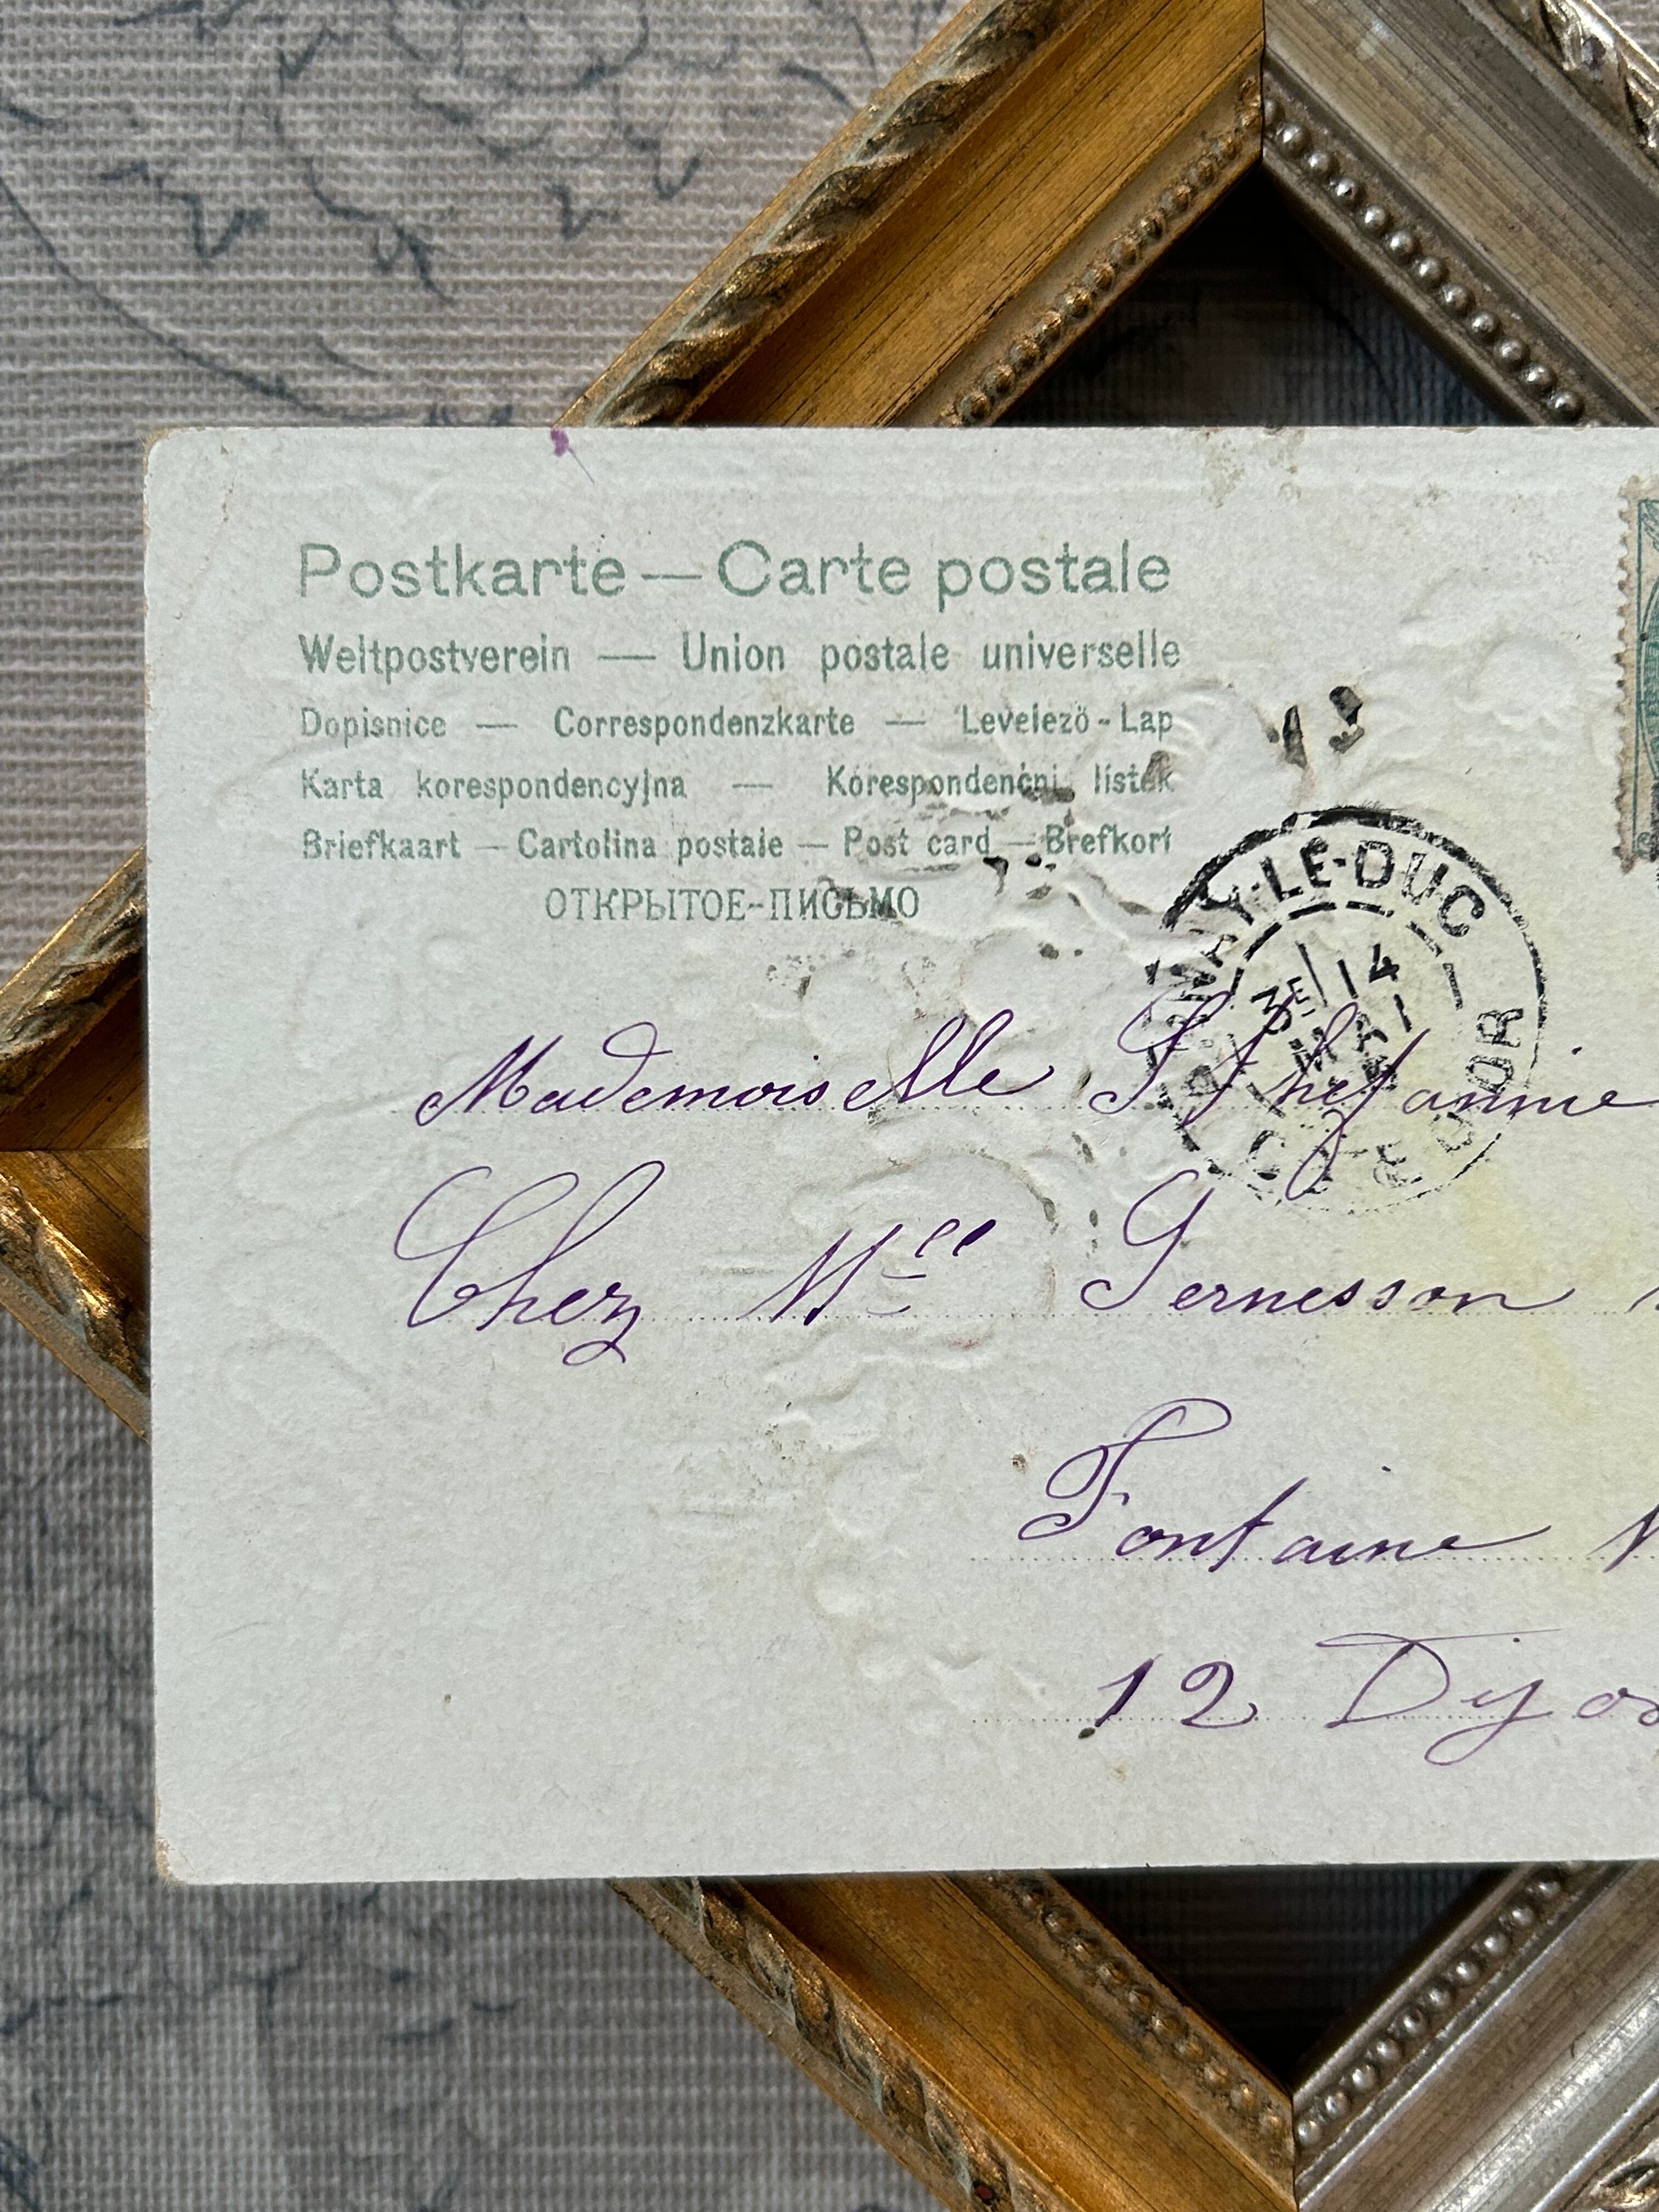 Postkarte — Carte postale
Weltpostverein — Union postale universelle
Dopisnice — Correspondenzkarte — Levelező-Lap
Karta korespondencyjna — Korespondenčni lístek
Briefkaart — Cartolina postale — Post card — Brefkort
ОТКРЫТОЕ-ПИСЬМО
13
AY-LE-DUC
3E 14
MAI
COTE D'OR
Mademoiselle Sthefannie
Chez Mlle Gernesson
Fontaine
12 Dijo